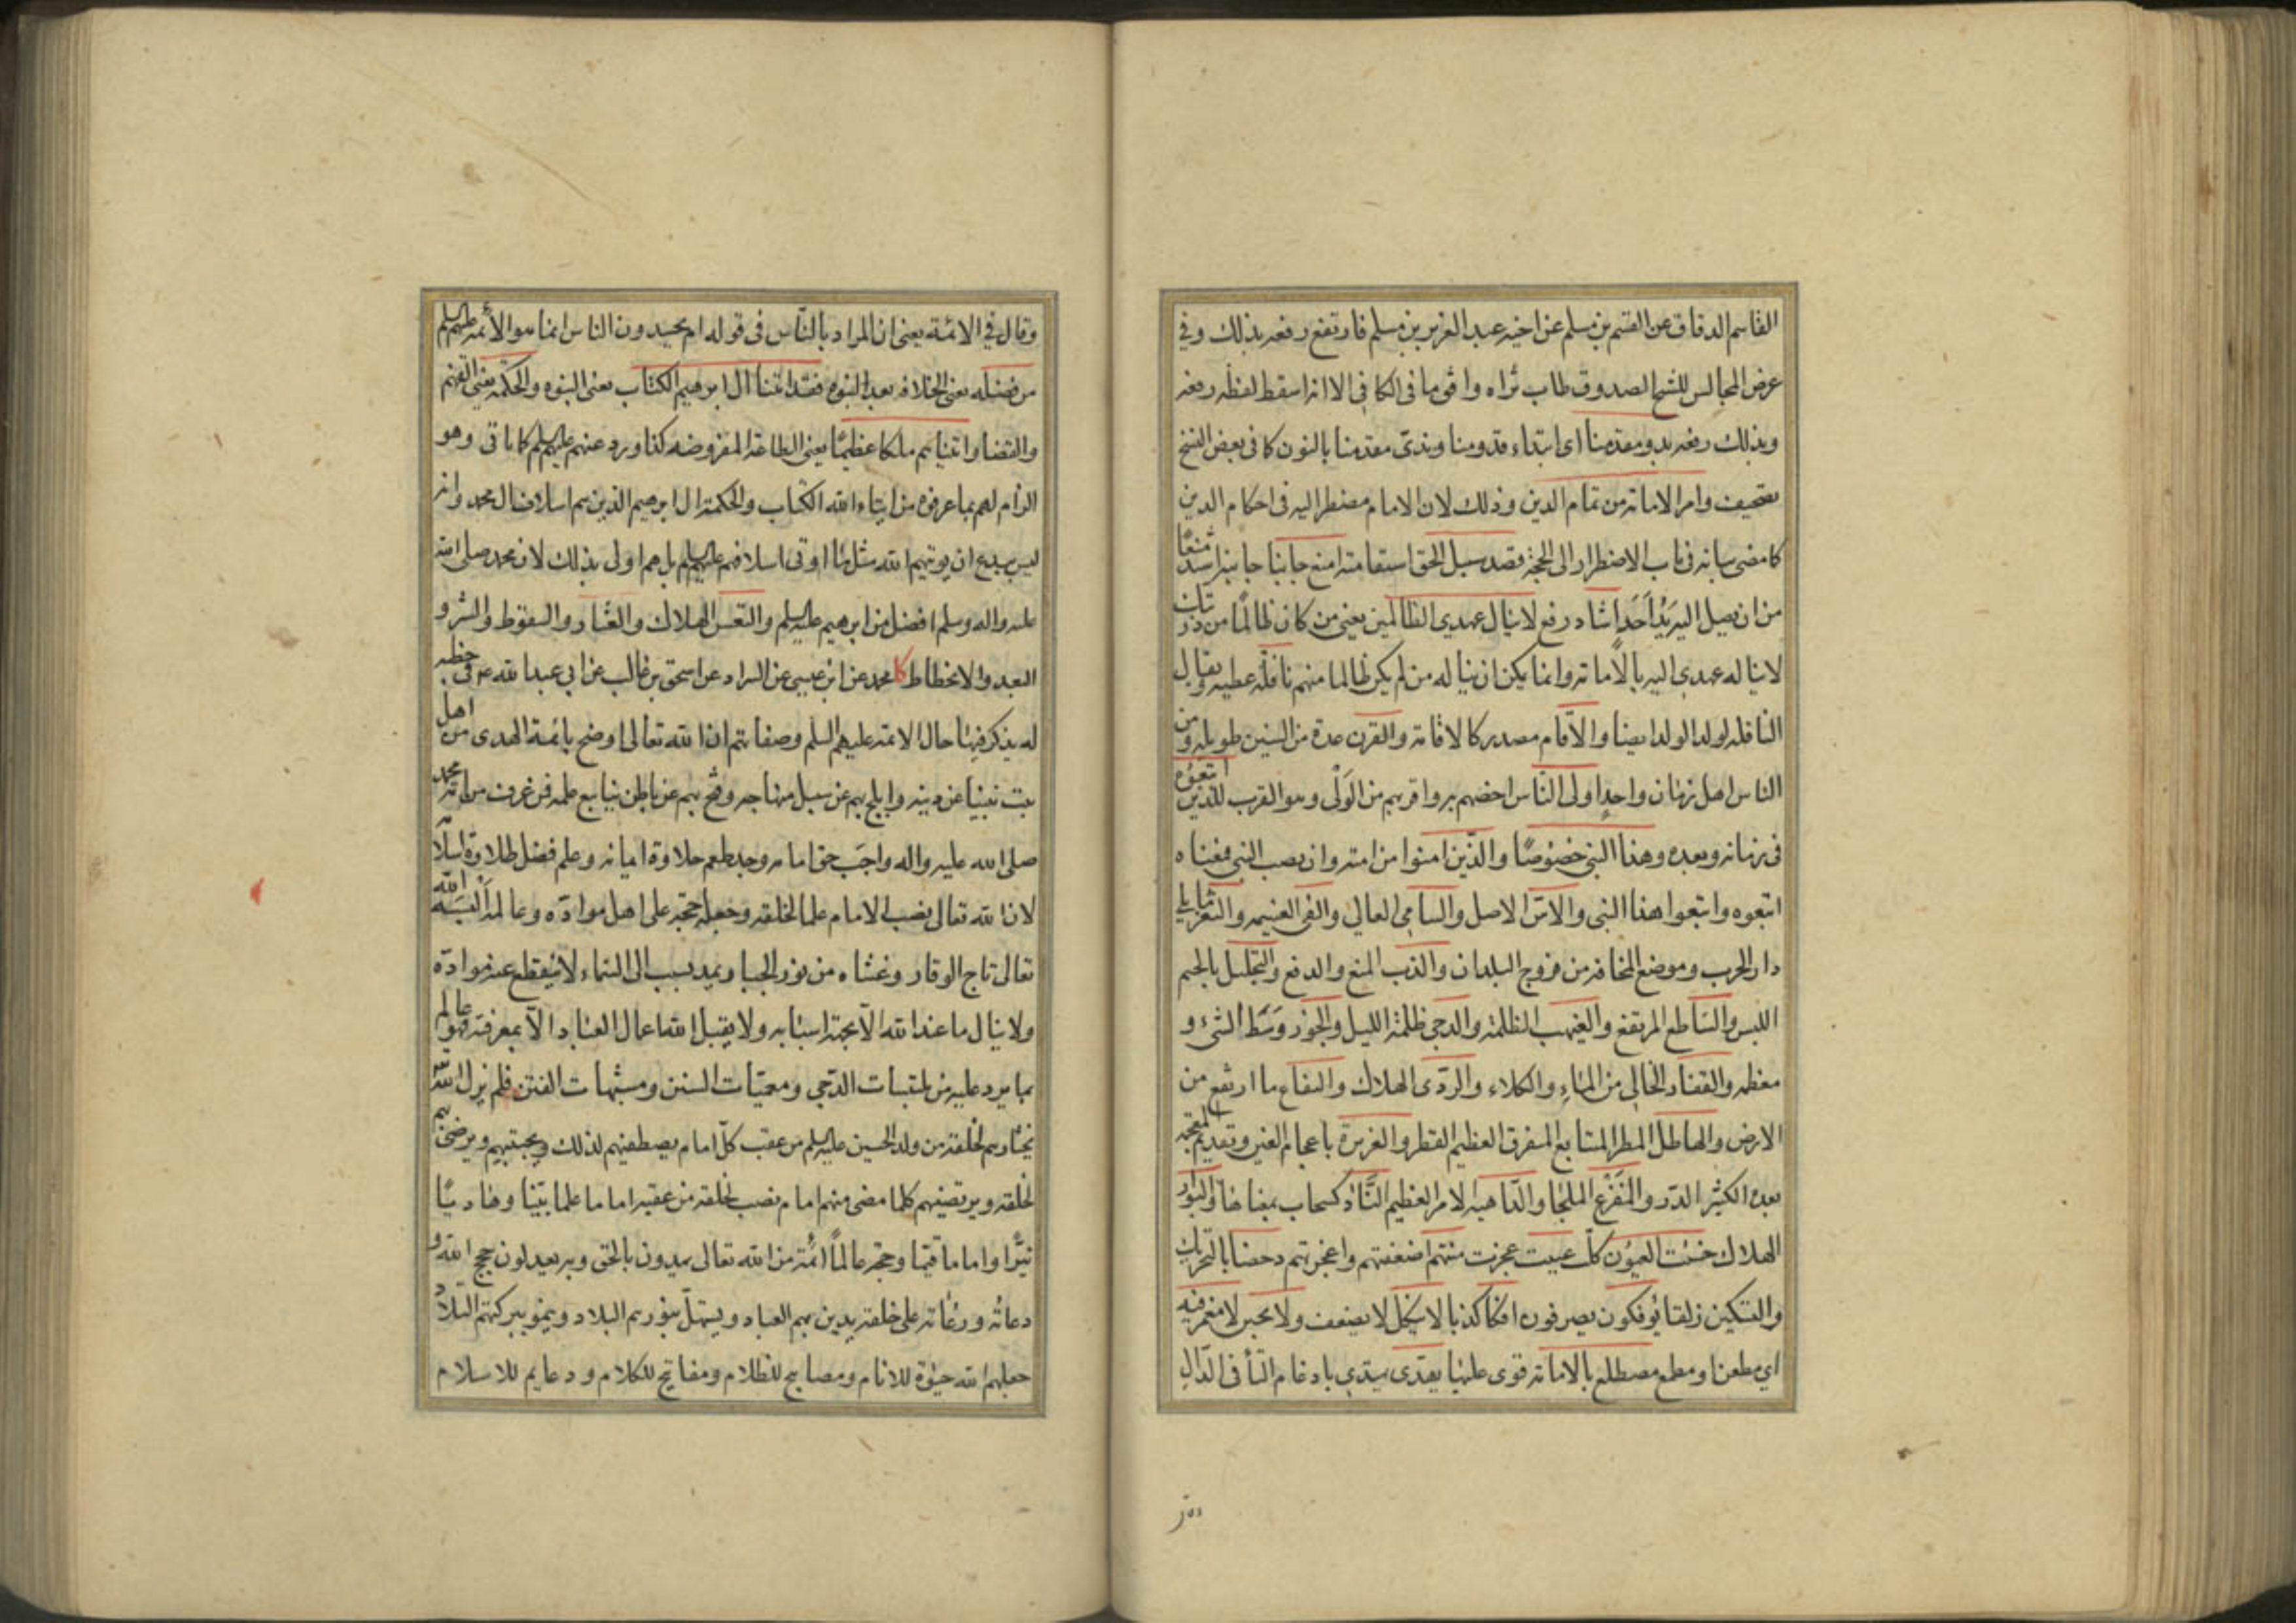 القاسم الدقاق عن القسم بن مسلم عن اخيه عبد العزيز بن مسلم فارتفع رفعه بذلك وفي
عرض المجالس للشيخ الصدوق طاب ثراه وافق ما في الكافي الا انه اسقط لفظه رفعه
وبذلك رفعه بدو مقدمنا اى ابتداء قدومنا وبدئ مقدمنا بالنون كما في بعض النسخ
تصحيف وامر الامامة من تمام الدين وذلك لان الامام مضطر اليه في احكام الدين
كما مضى بيانه في باب الاضطرار الى الحجة قصد سبيل الحق استقامته امنع جانبا جانبه اشد منعًا
من ان يصل اليه يد احد اشاد رفع لا ينال عهدي الظالمين يعني من كان ظالمًا من ذريتك
لا يناله عهدي اليه بالامامة وانما يمكن ان يناله من لم يكن ظالما منهم نافلة عطيه ويقال
النافلة لولد الولد ايضا والاقام مصدر كالاقامة والقرن مدة من السنين طويلة ومن
الناس اهل زمان واحد اولى الناس اخصهم به واقربهم من الولى وهو القرب للذين اتبعوه
في زمانه وبعده وهذا النبي خصوصًا والذين امنوا من امته وان نصب النبي فمعناه
اتبعوه واتبعوا هذا النبي والاس الاصل والسامي العالي والفئ الغنيمة والثغر ما يلي
دار الحرب وموضع المخافة من فروج البلدان والذب المنع والدفع والتجليل بالجيم
اللبس والساطع المرتفع والغيهب الظلمة والدجى ظلمة الليل والجوز وسط الشئ و
معظمه والقفار الخالى من الماء والكلاء والردى الهلاك واليفاع ما ارتفع من
الارض والهاطل المطر المتتابع المتفرق العظيم القطر والغزيرة باعجام الغين وتقديم المعجمة
بعده الكثير الدر والمفزع الملجا والداهية الامر العظيم الناد كسحاب بمعناها والبوار
الهلاك خسئت العيون كلت عييت عجزت منتهم اضعفتهم واعجزتهم دحضا بالتحريك
والتسكين زلقا يؤفكون يصرفون افكا كذبا لا ينكل لا يضعف ولا يجبن لا مغمز فيه
اي مطعنا ومطمع مضطلع بالامامة قوى عليها يهدى يهتدي بادغام التأ في الدال
وقال في الائمة يعني ان المراد بالناس في قوله ام يحسدون الناس انما هو الائمة عليهم السلم
من فضله يعني الخلافة بعد النبوه فقد اتينا آل ابرهيم الكتاب يعني النبوه والحكمة يعني الفهم
والقضا واتيناهم ملكا عظيمًا يعني الطاعة المفروضه كذا ورد عنهم عليهم السلم كما ياتى وهو
الزام لهم بما عرفوه من ايتاء الله الكتاب والحكمة ال ابرهيم الذين هم اسلاف ال محمد وانه
ليس ببدع ان يؤتيهم الله مثل ما اوتى اسلافهم عليهم السلم بل هم اولى بذلك لان محمد صلى الله
عليه واله وسلم افضل من ابرهيم عليه السلم والتعس الهلاك والعثار والسقوط والشر و
البعد والانحطاط كا محمد عن ابن عيسى عن السراد عن اسحق بن غالب عن ابي عبد الله ع في خطبة
له يذكر فيها حال الائمة عليهم السلم وصفاتهم ان الله تعالى اوضح بائمة الهدى من اهل
بيت نبينا عن دينه وابلج بهم عن سبيل منهاجه وفتح بهم عن باطن ينابيع علمه فمن عرف من امة محمد
صلى الله عليه واله واجب حق امامه وجد طعم حلاوة ايمانه وعلم فضل طلاوة اسلامه
لان الله تعالى نصب الامام علما لخلقه وجعله حجة على اهل مواده وعالمه البسه الله
تعالى تاج الوقار وغشاه من نور الجبار يمد بسبب الى السماء لا ينقطع عنه مواده
ولا ينال ما عند الله الا بجهة اسبابه ولا يقبل الله اعمال العباد الا بمعرفته فهو عالم
بما يرد عليه من ملتبسات الدجى ومعميات السنن ومشبهات الفتن فلم يزل الله
يختارهم لخلقه من ولد الحسين عليه السلم من عقب كل امام يصطفيهم لذلك ويجتبيهم ويرضى بهم
لخلقه ويرتضيهم كلما مضى منهم امام نصب لخلقه من عقبه اماما علما بينا وهاديًا
نيّرا واماما قيما وحجة عالمًا ائمة من الله تعالى يهدون بالحق وبه يعدلون حجج الله و
دعاته ورعاته على خلقه يدين بهم العباد ويستهل بنورهم البلاد وينمو ببركتهم التلاد
جعلهم الله حيوة للانام ومصابيح للظلام ومفاتيح للكلام ودعايم للاسلام